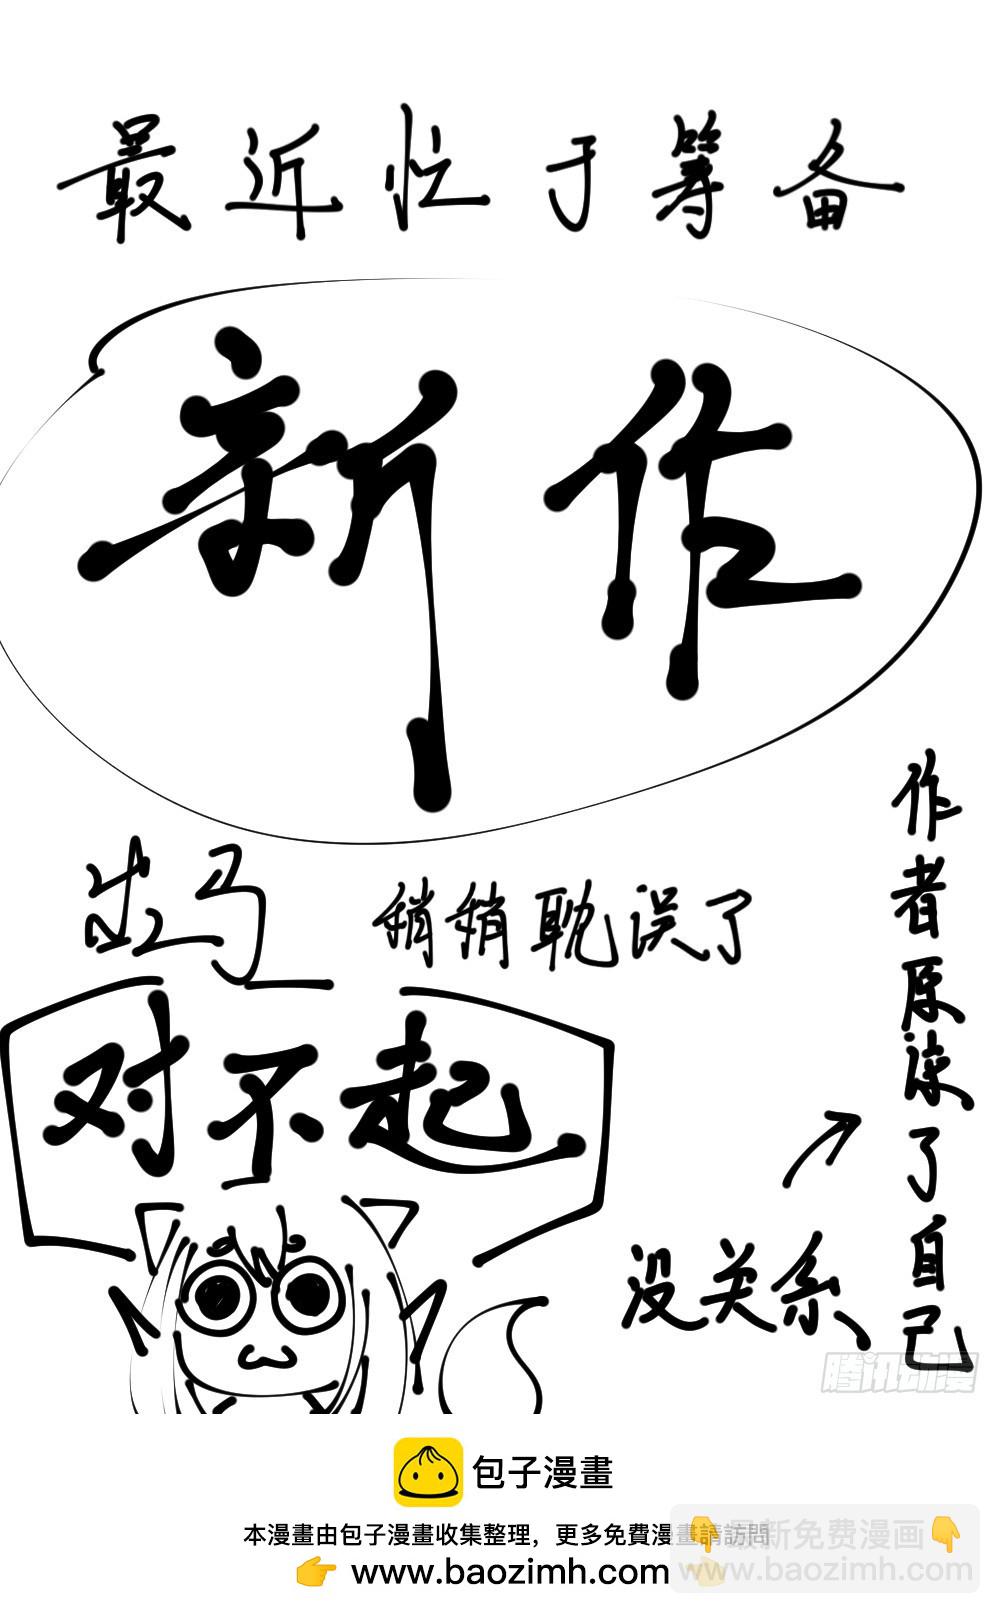 最近忙于筹备
新作
出马 稍稍耽误了
对不起
作者原谅了自己
没关系
腾讯动漫
包子漫畫
本漫畫由包子漫畫收集整理，更多免費漫畫請訪問
👉 www.baozimh.com
👇最新免费漫画👇
www.baozimh.com